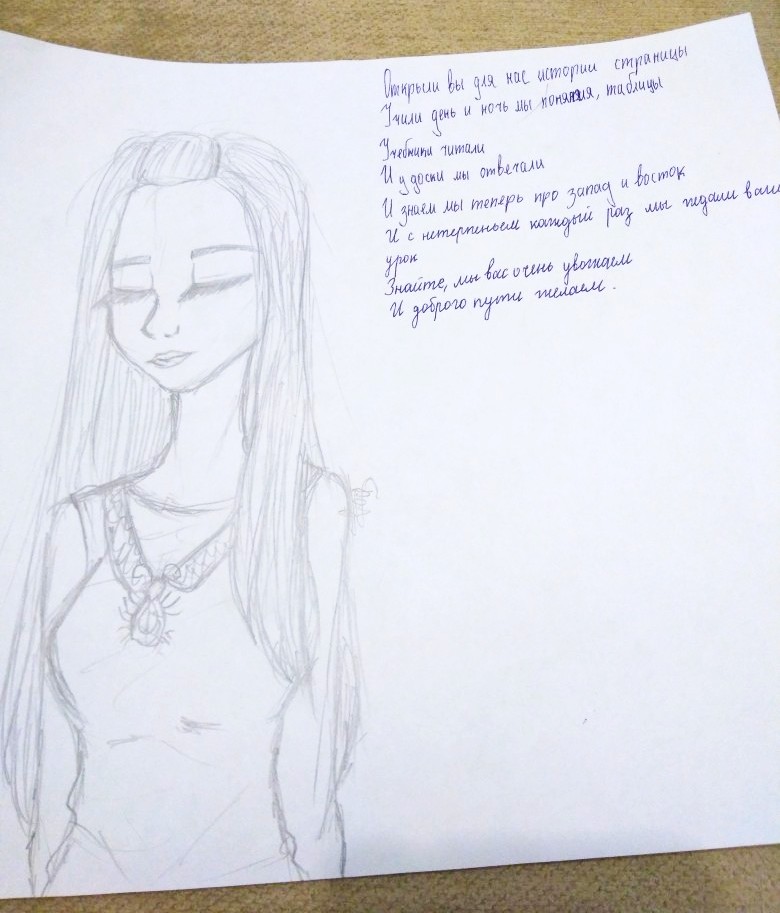 Открыли вы для нас истории страницы
Учили день и ночь мы понятия, таблицы
Учебники читали
И у доски мы отвечали
И знаем мы теперь про запад и восток
И с нетерпеньем каждый раз мы ждали ваш
урок
Знайте, мы вас очень уважаем
И доброго пути желаем.